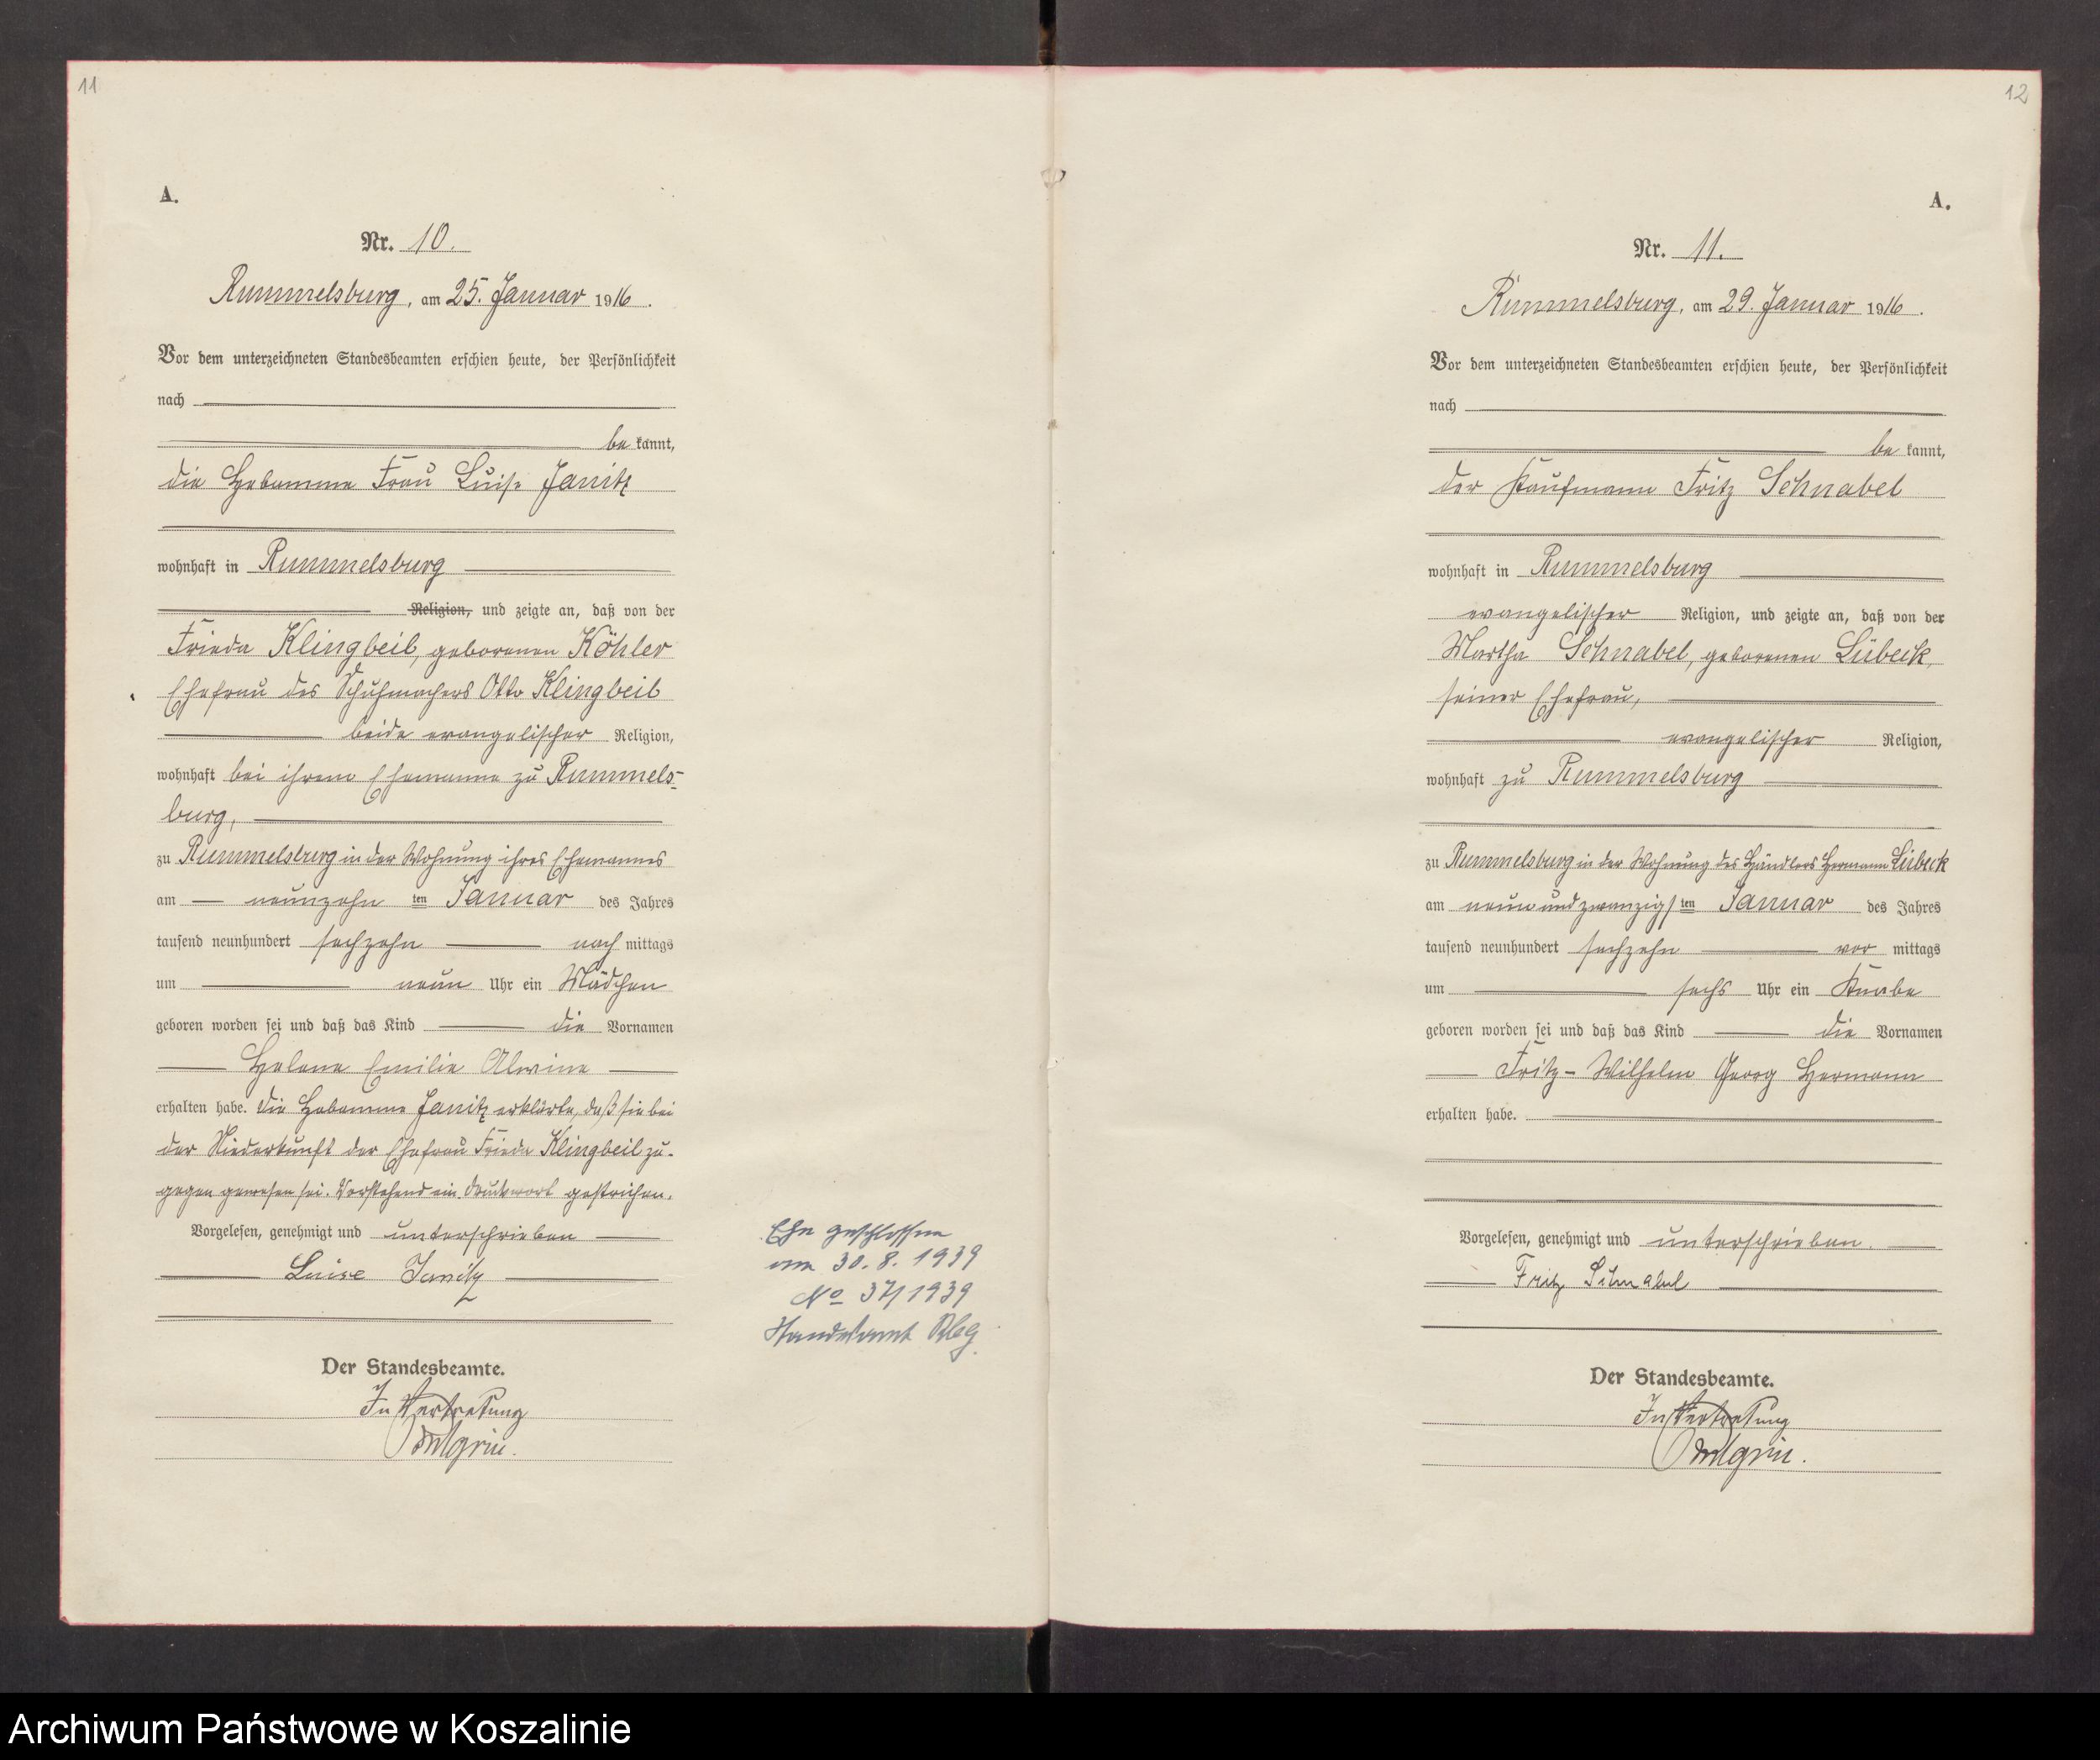 11
A.
Nr. 10.
Rummelsburg, am 25. Januar 1916.
Vor dem unterzeichneten Standesbeamten erschien heute, der Persönlichkeit
nach
be kannt,
die Hebamme Frau Luise Janitz
wohnhaft in Rummelsburg
Religion, und zeigte an, daß von der
Frieda Klingbeil, geborenen Köhler
Ehefrau des Schuhmachers Otto Klingbeil
beide evangelischer Religion,
wohnhaft bei ihrem Ehemanne zu Rummels-
burg,
zu Rummelsburg in der Wohnung ihres Ehemannes
am neunzehn ten Januar des Jahres
tausend neunhundert sechzehn nach mittags
um neun Uhr ein Mädchen
geboren worden sei und daß das Kind die Vornamen
Helene Emilie Alwine
erhalten habe. Die Hebamme Janitz erklärte, daß sie bei
der Niederkunft der Ehefrau Frieda Klingbeil zu-
gegen gewesen sei. Vorstehend ein Druckwort gestrichen.
Vorgelesen, genehmigt und unterschrieben
Luise Janitz
Der Standesbeamte.
In Vertretung
Ehe geschlossen
am 30. 8. 1939
No 37/1939
Standesamt Rbg.
12
A.
Nr. 11.
Rummelsburg, am 29. Januar 1916.
Vor dem unterzeichneten Standesbeamten erschien heute, der Persönlichkeit
nach
be kannt,
der Kaufmann Fritz Schnabel
wohnhaft in Rummelsburg
evangelischer Religion, und zeigte an, daß von der
Martha Schnabel, geborenen Lübeck,
seiner Ehefrau,
evangelischer Religion,
wohnhaft zu Rummelsburg
zu Rummelsburg in der Wohnung des Händlers Hermann Lübeck
am neunundzwanzigs ten Januar des Jahres
tausend neunhundert sechzehn vor mittags
um sechs Uhr ein Knabe
geboren worden sei und daß das Kind die Vornamen
Fritz-Wilhelm Georg Hermann
erhalten habe.
Vorgelesen, genehmigt und unterschrieben.
Fritz Schnabel
Der Standesbeamte.
In Vertretung
Archiwum Państwowe w Koszalinie